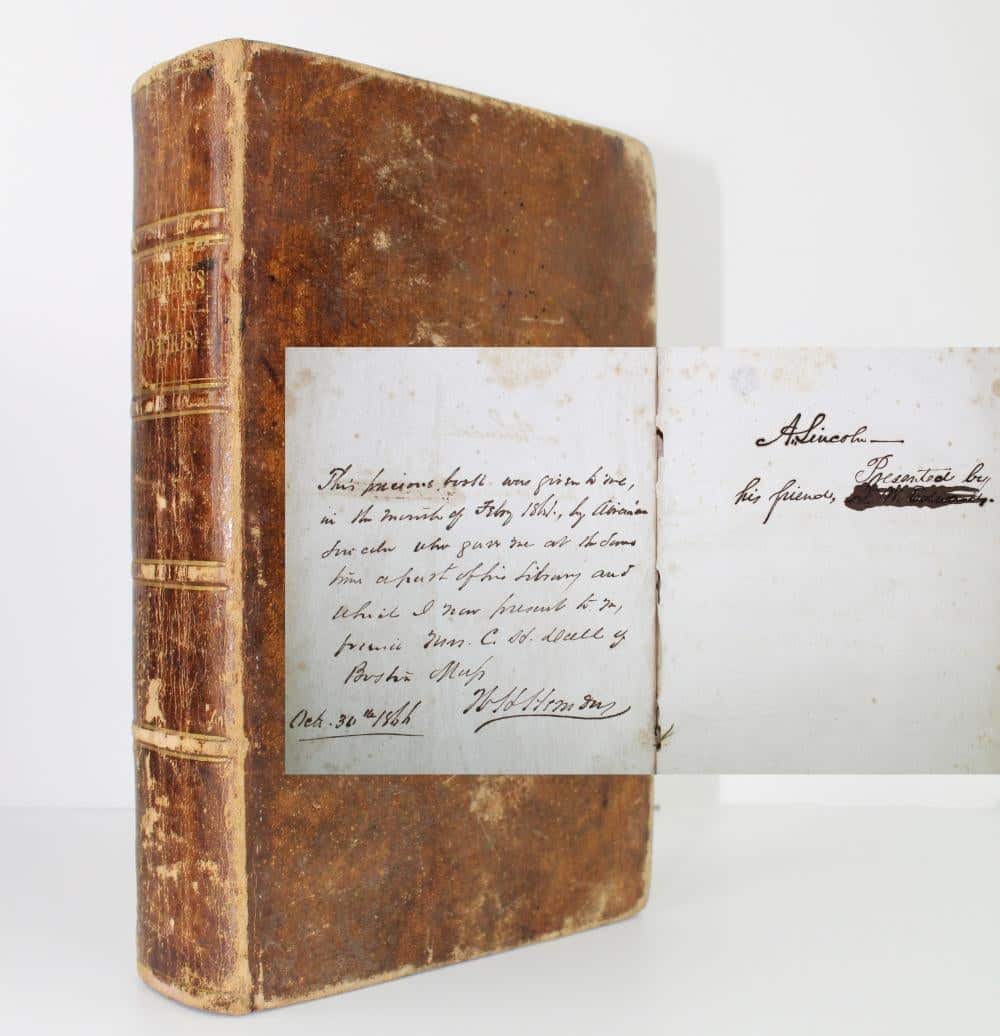 WORKS.
This precious book was given to me,
in the month of Feby 1861, by Abraham
Lincoln who gave me at the same
time a part of his Library and
which I now present to my
friend Mrs. C. H. Dall of
Boston Mass
W H Herndon
Oct. 30th 1866
A. Lincoln—
Presented by
his friend,